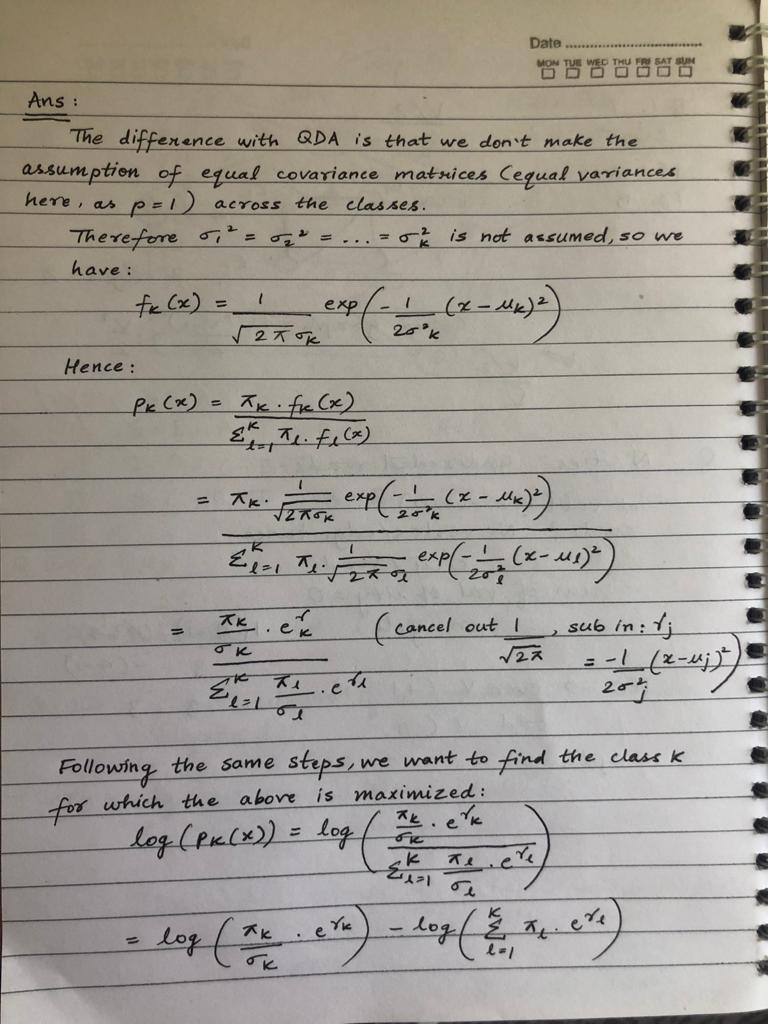 Date
MON TUE WED THU FRI SAT SUN
Ans :
The difference with QDA is that we don't make the
assumption of equal covariance matrices (equal variances
here, as p = 1) across the classes.
Therefore σ₁² = σ₂² = ... = σₖ² is not assumed, so we
have :
fₖ(x) = 1/(√2π σₖ) exp(-1/(2σ²ₖ) (x - μₖ)²)
Hence :
pₖ(x) = πₖ . fₖ(x) / Σᴷₗ₌₁ πₗ . fₗ(x)
= πₖ . 1/(√2πσₖ) exp(-1/(2σ²ₖ) (x - μₖ)²) / Σᴷₗ₌₁ πₗ . 1/(√2π σₗ) exp(-1/(2σₗ²) (x - μₗ)²)
= πₖ/σₖ . e^γₖ / Σᴷₗ₌₁ πₗ/σₗ . e^γₗ (cancel out 1/√2π, sub in : γⱼ = -1/(2σ²ⱼ) (x - μⱼ)²)
Following the same steps, we want to find the class K
for which the above is maximized :
log(pₖ(x)) = log(πₖ/σₖ . e^γₖ / Σᴷₗ₌₁ πₗ/σₗ . e^γₗ)
= log(πₖ/σₖ . e^γₖ) - log(Σᴷₗ₌₁ πₗ . e^γₗ)